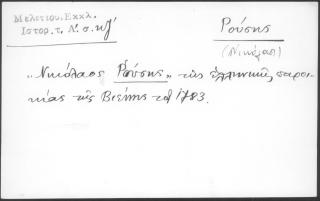 Μελετίου. Εκκλ.
Ιστορ. τ. Α'. σ. κζ'
Ρούσης
(Νικόλαος)
„Νικόλαος Ρούσης„ τῆς ἑλληνικῆς παροι-
κίας τῆς Βιέννης τοῦ 1783.